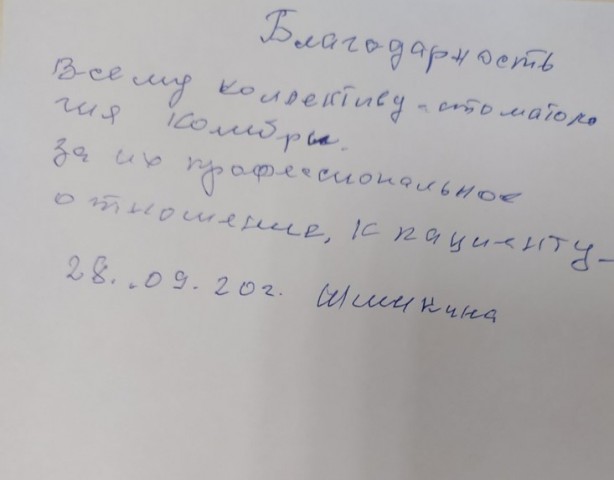 Благодарность
Всему коллективу - стоматоло
гия Колибры.
за их профессиональное
отношение, к пациенту-
28.09.20г. Шишкина